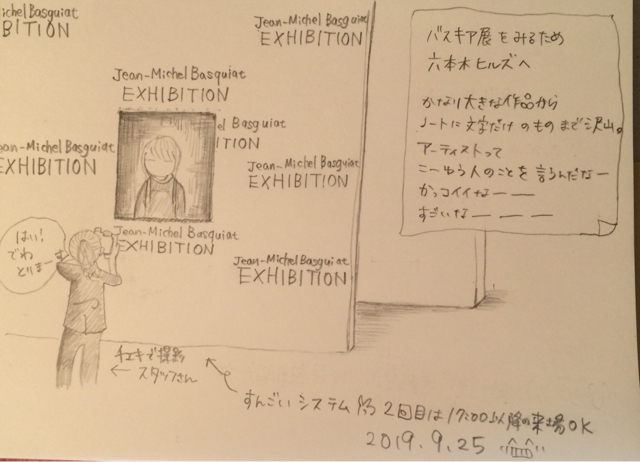 ichel Basquiat
EXHIBITION
Jean-Michel Basquiat
EXHIBITION
Jean-Michel Basquiat
EXHIBITION
el Basquiat
TION
ean-Michel Basquiat
EXHIBITION
Jean-Michel Basquiat
EXHIBITION
Jean-Michel Basquiat
EXHIBITION
Jean-Michel Basquiat
EXHIBITION
バスキア展をみるため
六本木ヒルズへ
かなり大きな作品から
ノートに文字だけのものまで沢山。
アーティストって
こーゆう人のことを言うんだなー
かっコイイなーー
すごいなーーー
はい!
でわ
とりまーす
チェキで撮影
← スタッフさん
すんごいシステム
2回目は17:00以降の来場OK
2019.9.25